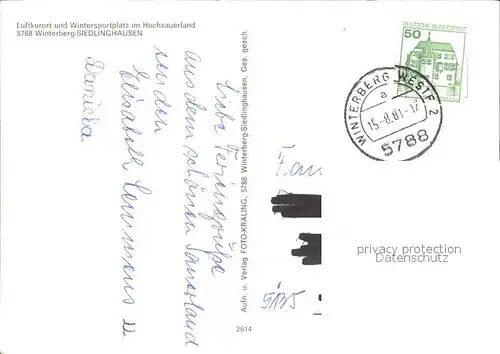 Luftkurort und Wintersportplatz im Hochsauerland
5788 Winterberg-SIEDLINGHAUSEN
Liebe Feriengrüße
aus dem schönen Sauerland
senden
Elisabeth
Daniela
Aufn. u. Verlag FOTO-KRALING, 5788 Winterberg-Siedlinghausen, Ges. gesch.
2614
DEUTSCHE BUNDESPOST
50
WINTERBERG WESTF 2
a
15.-8.81-17
5788
Fam
5135
privacy protection
Datenschutz